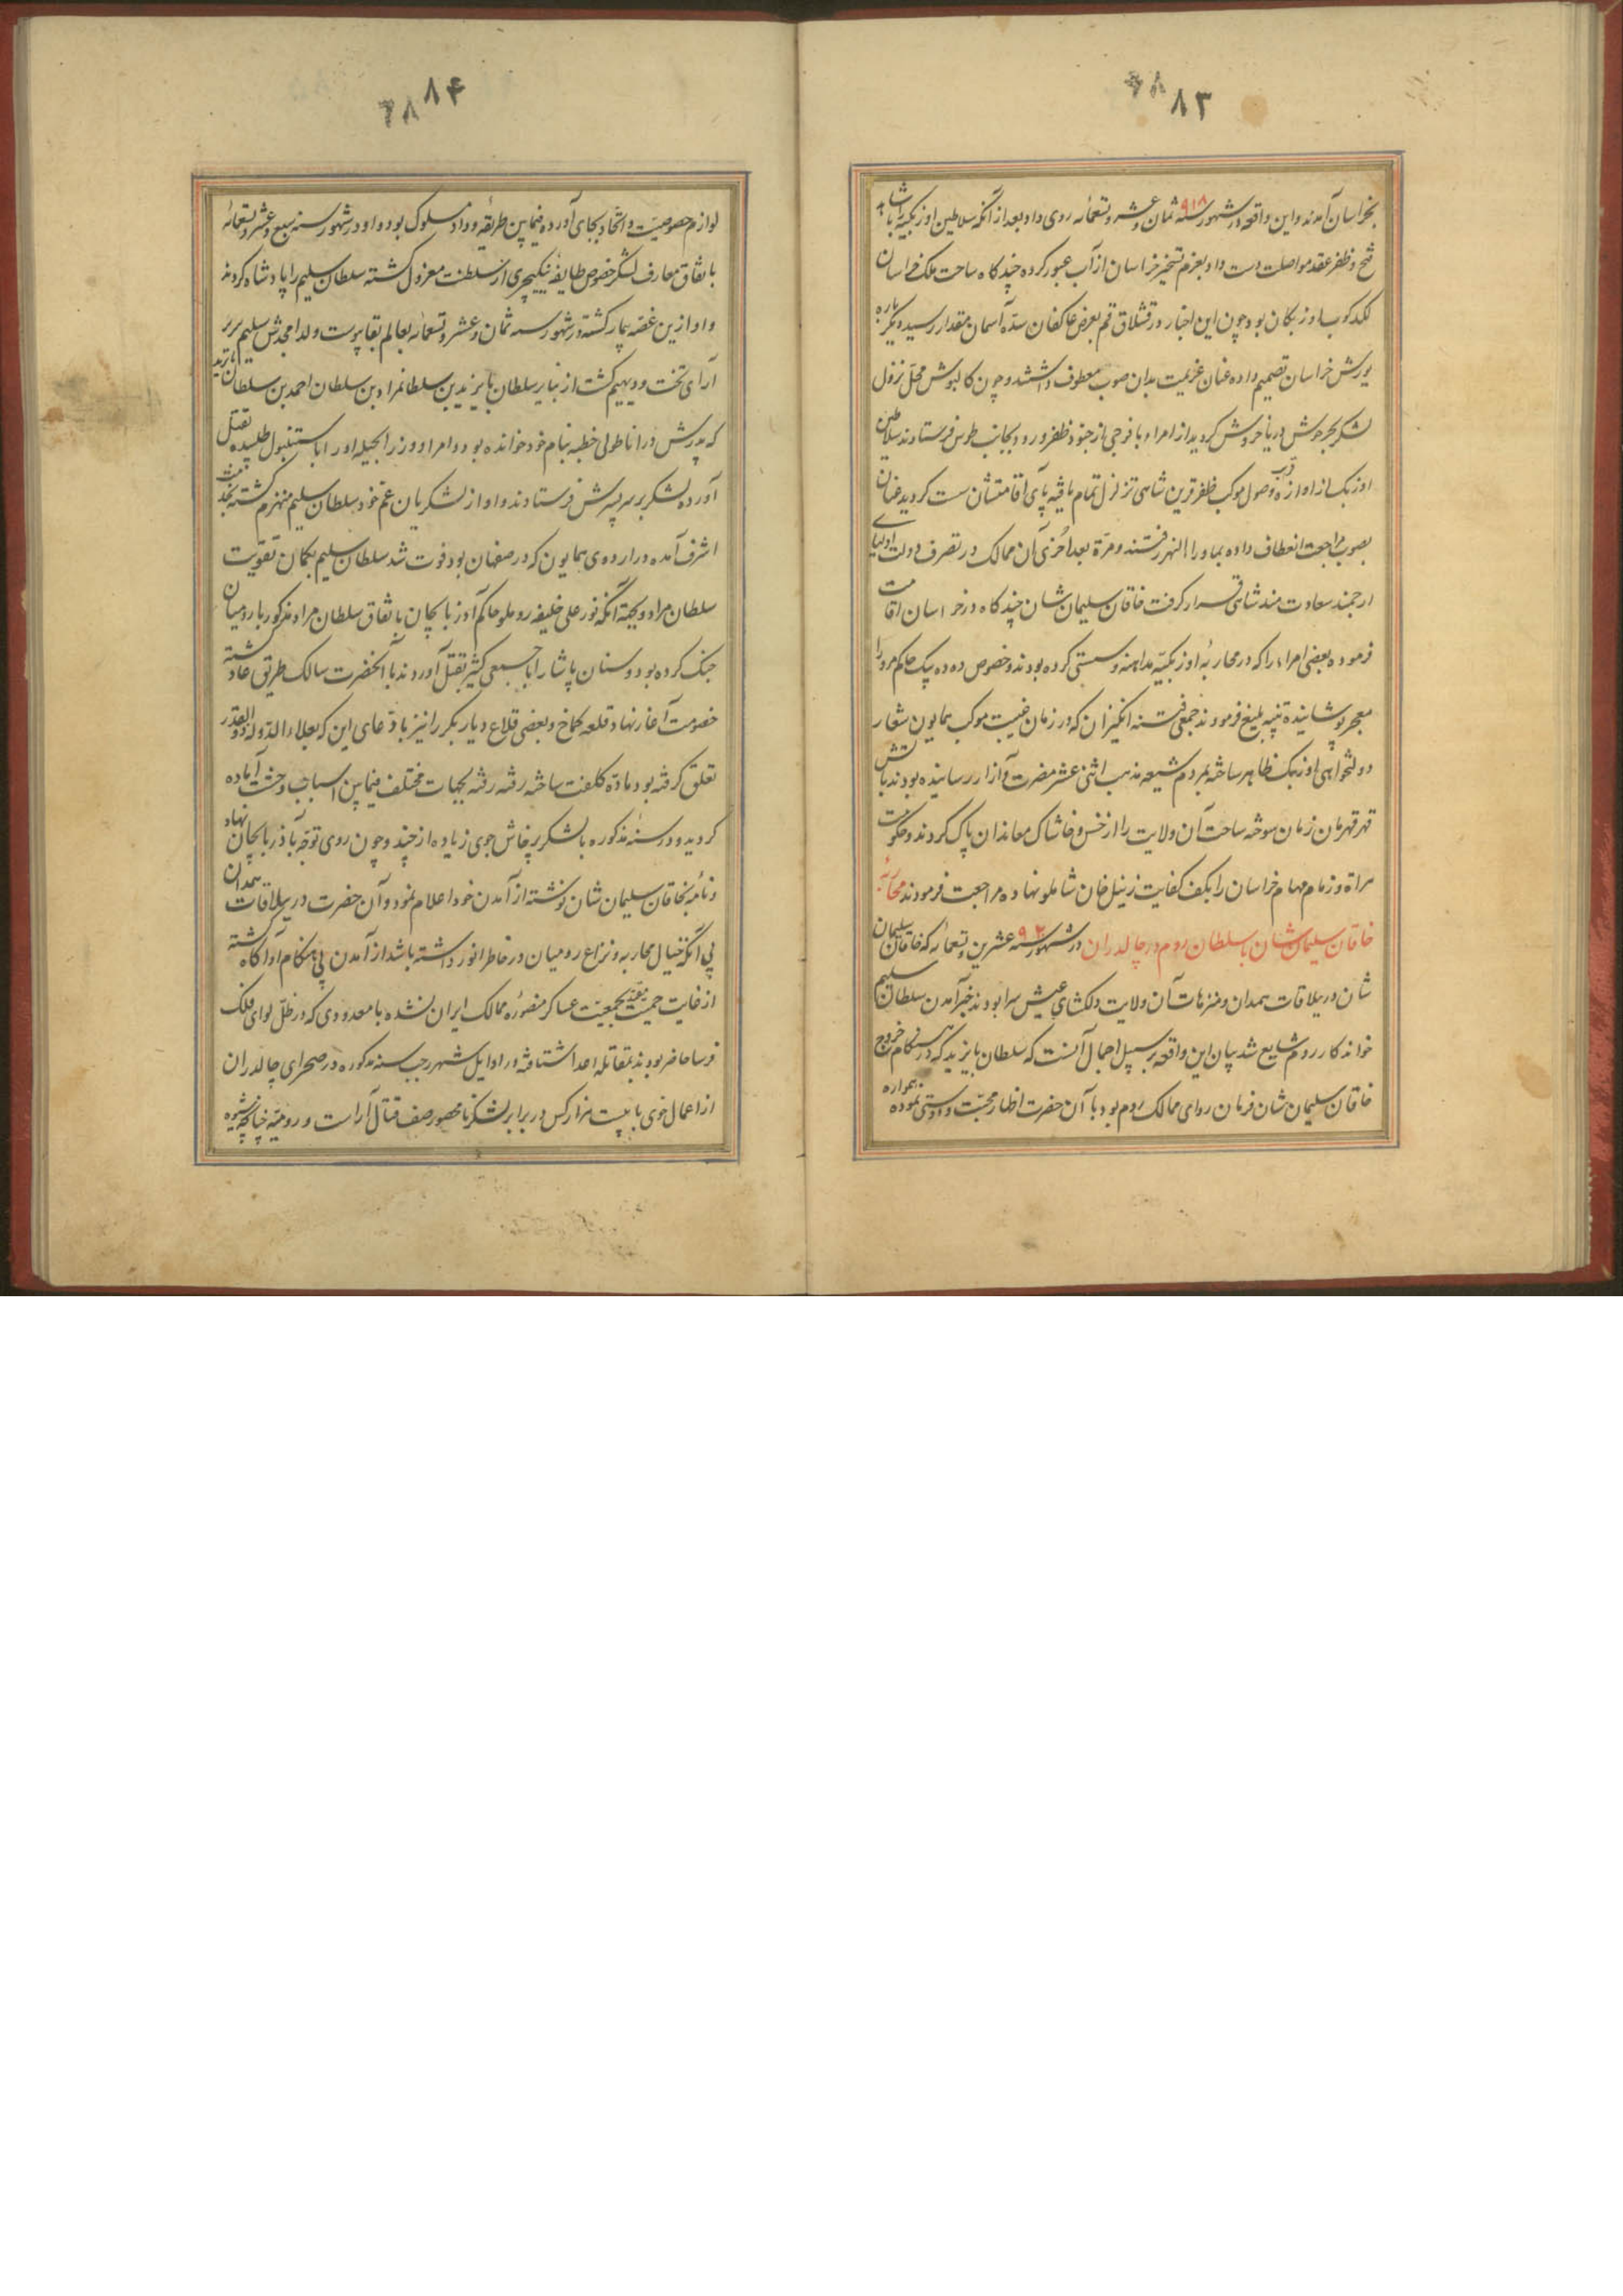 ۸۳
بخراسان آمدند و این واقعه در شهور سنه ۹۱۸ ثمان و عشر و تسعمائه روی داد و بعد از آنکه سلاطین اوزبکیه را با شاهد
فتح و ظفر عقد مواصلت دست داد بعزم تسخیر خراسان از آب عبور کرده چند کاه ساحت ملک خراسان
لکدکوب اوزبکان بود چون این اخبار در قشلاق قم بعرض عاکفان سدّه آسمان مقدار رسید دیگرباره
یورش خراسان تصمیم داده عنان عزیمت بدان صوب معطوف داشتند و چون کالپوش محل نزول
لشکر بحر جوش دریا خروش کردید از امراء با فوجی از جنود ظفر ورود بجانب طوس فرستادند سلاطین
اوزبک از اوازه قرب وصول موکب ظفر قرین شاهی تزلزل تمام یافته پای اقامتشان سست کردید عنان
بصوب مراجعت انعطاف داده بماوراء النهر رفتند و مرّة بعد اُخری آن ممالک در تصرف دولت اولیای
ارجمند سعادت مند شاهی قرار کرفت خاقان سلیمان شان چند کاه در خراسان اقامت
فرموده بعضی امراء را که در محاربهٔ اوزبکیّه مداهنه و سستی کرده بودند و خصوص ده ده بیک حاکم مرو را
معجر پوشانیده تنبیه بلیغ فرمودند جمعی فتنه انکیزان که در زمان غیبت موکب همایون شعار
دولتخواهی اوزبک ظاهر ساخته بمردم شیعه مذهب اثنی عشر مضرت و آزار رسانیده بودند بآتش
قهر قهرمان زمان سوخته ساحت آن ولایت را از خس و خاشاک معاندان پاک کردند و حکومت
هراة و زمام مهام خراسان را بکف کفایت زینل خان شاملو نهاده مراجعت فرمودند محاربهٔ
خاقان سلیمان شان با سلطان روم در چالدران در شهور سنه ۹۲۰ عشرین و تسعمائه که خاقان سلیمان
شان در ییلاقات همدان و منزهات آن ولایت دلکشای عیش سرا بودند خبر آمدن سلطان سلیم
خواندکار روم شایع شد بیان این واقعه بر سبیل اجمال آنست که سلطان بایزید که در هنکام خروج
خاقان سلیمان شان فرمان روای ممالک روم بود با آن حضرت اظهار محبّت و دوستی نموده همواره
۸۴
لوازم خصوصیّت و اتّحاد بجای آورده فیمابین طریقهٔ وداد مسلوک بود و او در شهور سنه سبع و عشر و تسعمائه
باتفاق معارف لشکر خصوص طایفهٔ ینکیچری از سلطنت معزول کشته سلطان سلیم را پادشاه کردند
و او ازین غصّه بیمار کشته در شهور سنه ثمان و عشر و تسعمائه بعالم بقا پیوست ولد امجدش سلیم سریر
آرای تخت و دیهیم کشت از نبایر سلطان بایزید بن سلطانمراد بن سلطان احمد بن سلطان بایزید
که پدرش در اناطولی خطبه بنام خود خوانده بود و امرا و وزرا بحیله او را باستنبول طلبیده بقتل
آورده لشکر بر سر پسرش فرستادند و او از لشکریان عمّ خود سلطان سلیم منهزم کشته بخدمت
اشرف آمده در اردوی همایون که در صفهان بود فوت شد سلطان سلیم بکمان تقویت
سلطان مراد و بجهة آنکه نور علی خلیفه روملو حاکم آذربایجان باتفاق سلطان مراد مذکور با رومیان
جنک کرده بود و سنان پاشا را با جمعی کثیر بقتل آوردند با آنحضرت سالک طریق عداوت کشته
خصومت آغاز نهاد و قلعه کماخ و بعضی قلاع دیار بکر را نیز باد عای این که بعلاء الدّوله ذوالقدر
تعلق کرفته بود مادّهٔ کلفت ساخته رفته رفته بجهات مختلف فیمابین اسباب وحشت آماده
کردید و در سنهٔ مذکوره با لشکر پرخاش جوی زیاده از چند و چون روی توجّه بآذربایجان نهاد
و نامه بخاقان سلیمان شان نوشته از آمدن خود اعلام نمود و آن حضرت در ییلاقات همدان
بی آنکه خیال محاربه و نزاع رومیان در خاطر انور داشته باشد از آمدن بی هنکام او آکاه کشته
از غایت حمیت مقیّد بجمعیّت عساکر منصورهٔ ممالک ایران نشده با معدودی که در ظلّ لوای فلک
فرسا حاضر بودند بمقاتله اعدا شتافته در اوایل شهر رجب سنه مذکوره در صحرای چالدران
از اعمال خوی با بیست هزار کس در برابر لشکر نامحصور صف قتال آراست و رومیّه چنانچه شیوه